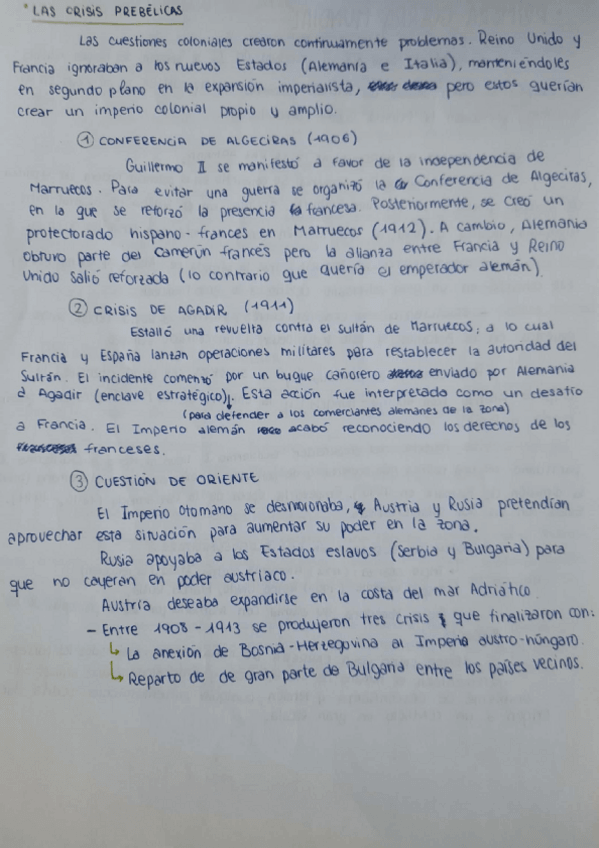 * LAS CRISIS PREBÉLICAS
Las cuestiones coloniales crearon continuamente problemas. Reino Unido y
Francia ignoraban a los nuevos Estados (Alemania e Italia), manteniéndoles
en segundo plano en la expansión imperialista, pero estos querían
crear un imperio colonial propio y amplio.
① CONFERENCIA DE ALGECIRAS (1906)
Guillermo II se manifestó a favor de la independencia de
Marruecos. Para evitar una guerra se organizó la Conferencia de Algeciras,
en la que se reforzó la presencia francesa. Posteriormente, se creó un
protectorado hispano-frances en Marruecos (1912). A cambio, Alemania
obtuvo parte del Camerún francés pero la alianza entre Francia y Reino
Unido salió reforzada (lo contrario que quería el emperador alemán).
② CRISIS DE AGADIR (1911)
Estalló una revuelta contra el sultán de Marruecos, a lo cual
Francia y España lanzan operaciones militares para restablecer la autoridad del
Sultán. El incidente comenzó por un buque cañorero enviado por Alemania
a Agadir (enclave estratégico). Esta acción fue interpretada como un desafío
(para defender a los comerciantes alemanes de la zona)
a Francia. El Imperio alemán acabó reconociendo los derechos de los
franceses.
③ CUESTIÓN DE ORIENTE
El Imperio Otomano se desmoronaba, Austria y Rusia pretendían
aprovechar esta situación para aumentar su poder en la zona.
Rusia apoyaba a los Estados eslavos (Serbia y Bulgaria) para
que no cayeran en poder austriaco.
Austria deseaba expandirse en la costa del mar Adriático.
- Entre 1908-1913 se produjeron tres crisis que finalizaron con:
↳ La anexión de Bosnia-Herzegovina al Imperio austro-húngaro.
↳ Reparto de de gran parte de Bulgaria entre los países vecinos.